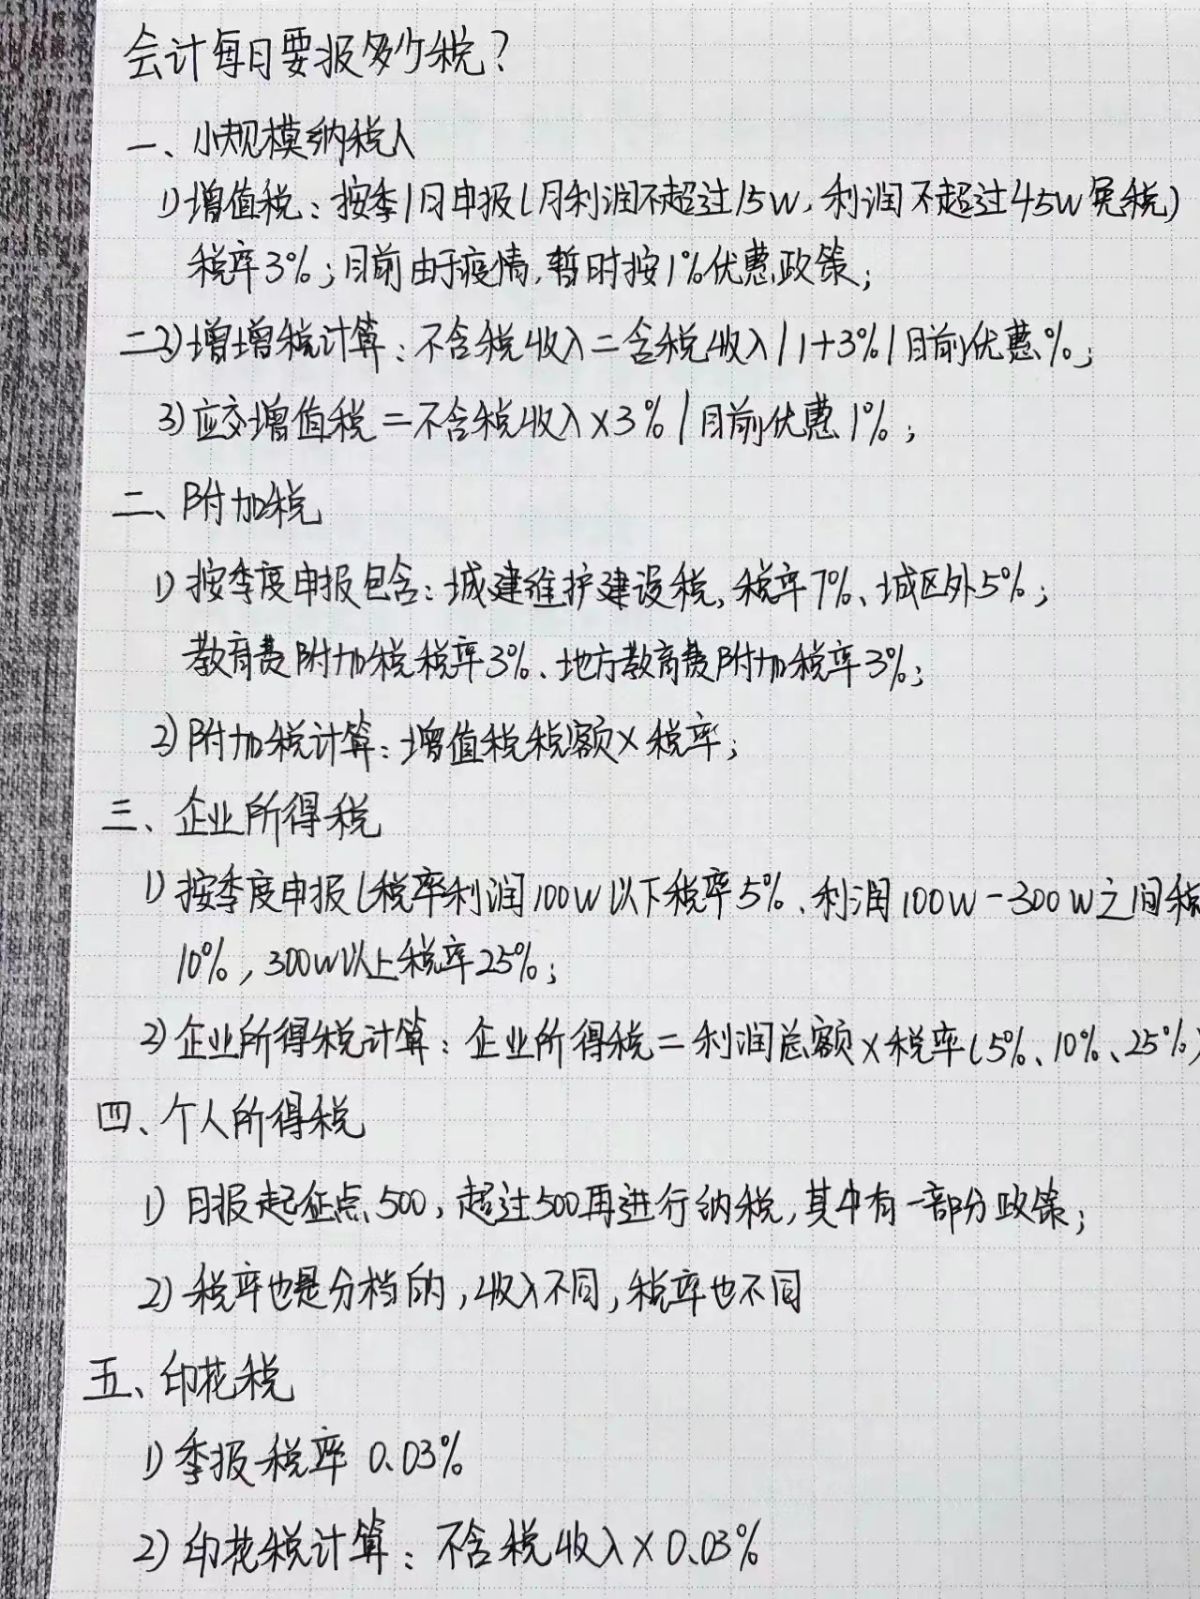 会计每日要报多少税?
一、小规模纳税人
1)增值税:按季1日申报(月利润不超过15W,利润不超过45W免税)
税率3%;目前由于疫情,暂时按1%优惠政策;
二2)增增税计算:不含税收入=含税收入/1+3%/目前优惠%;
3)应交增值税=不含税收入×3%/目前优惠1%;
二、附加税
1)按季度申报包含:城建维护建设税,税率7%、城区外5%;
教育费附加税税率3%、地方教育费附加税率3%;
2)附加税计算:增值税税额×税率;
三、企业所得税
1)按季度申报(税率利润100W以下税率5%、利润100W-300W之间税
10%,300W以上税率25%;
2)企业所得税计算:企业所得税=利润总额×税率(5%、10%、25%)
四、个人所得税
1)月报起征点500,超过500再进行纳税,其中有一部分政策;
2)税率也是分档的,收入不同,税率也不同
五、印花税
1)季报税率0.03%
2)印花税计算:不含税收入×0.03%